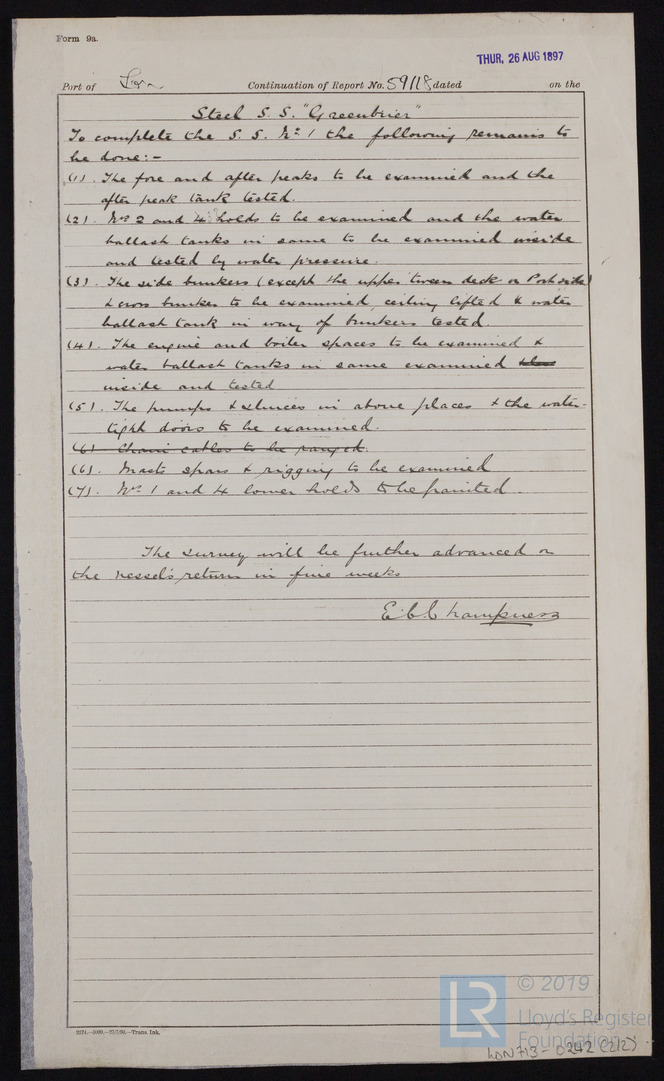 Form 9a.
THUR, 26 AUG 1897
Port of Lon Continuation of Report No. 59118 dated on the
Steel S. S. "Greenbrier"
To complete the S. S. No. 1 the following remains to
be done:-
(1). The fore and after peaks to be examined and the
after peak tank tested.
(2). Nos 2 and 4 holds to be examined and the water
ballast tanks in same to be examined inside
and tested by water pressure.
(3). The side bunkers (except the upper tween deck on Port side)
& cross bunker to be examined, ceiling lifted & water
ballast tank in way of bunkers tested.
(4). The engine and boiler spaces to be examined &
water ballast tanks in same examined
inside and tested
(5). The pumps & sluices in above places & the water-
tight doors to be examined.
(6) Chain cables to be ranged.
(6). Masts spars & rigging to be examined
(7). Nos 1 and 4 lower holds to be painted.
The survey will be further advanced on
the vessel's return in five weeks
E. C. Champness
2274.—5000.— Trans. Ink.
LR © 2019
Lloyd's Register
Foundation
LDN713-0242 (2/2)